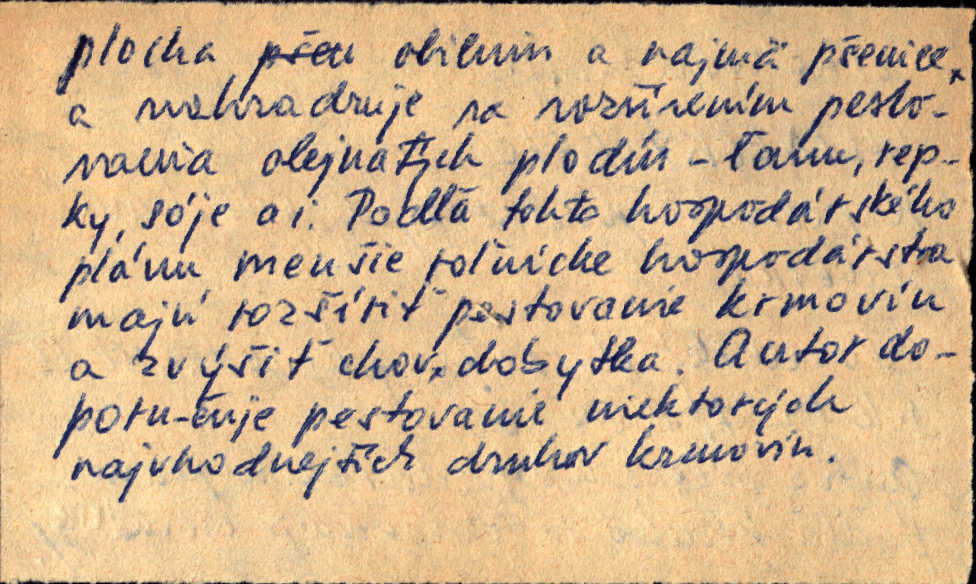 plocha pšen obilnín a najmä pšenice,
a nahradzuje sa rozšírením pesto-
vania olejnatých plodín - ľanu, rep-
ky, sóje a i. Podľa tohto hospodárskeho
plánu menšie roľnícke hospodárstva
majú rozšíriť pestovanie krmovín
a zvýšiť chov dobytka. Autor do-
poru-čuje pestovanie niektorých
najvhodnejších druhov krmovín.